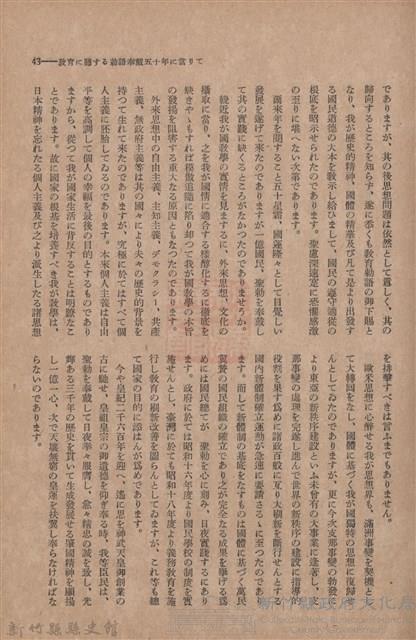 43――教育に關する勅語奉戴五十年に當りて
でありますが、其の後思想問題は依然として喧しく、其の
歸向するところを知らず、遂に畏くも教育勅語の御下賜と
なり、我が歷史的精神、國體の精華及び凡て是より出發す
る國民道德の大本を敎示し給ひまして、國民の遵守遵從の
根底を昭示せられたのであります。聖慮深遠寔に恐懼感激
の至りに堪へない次第であります。
爾來年を閱すること五十星霜、國運隆々として目覺しい
發展を遂げて來たのでありますが一億國民、聖勅を奉戴し
て其の實踐に缺くるところがなかつたのでありませうか。
輓近我が國敎學の實情を見まするに、外來思想、文化の
攝取に當り、之を我が國情に適合する樣醇化するに徹底を
缺きやゝもすれば模倣追隨に陷り却つて我が國敎學の本旨
の發揚を阻害する重大なる原因ともなつたのであります。
外來思想中の自由主義、主知主義、デモクラシー、共產
主義、無政府主義等は其の國々により夫々の歷史的背景を
持つて生れて來たのでありますが、究極に於てはすべて個
人主義に胚胎してゐるのであります。本來個人主義は自由
平等を高調して個人の幸福を最後の目的とするものであり
ますから、從つて我が國家生活に背反することは明瞭なこ
とであります。故に國家の根基を培養すべき我が敎學は、
日本精神を忘れたる個人主義及び之より派生したる諸思想
を排擊すべきは言ふまでもありません。
歐米思想に心醉せる我が思想界も、滿洲事變を契機とし
て大轉囘をなし、國體に基づく我が國獨特の思想に復歸せ
んとしてゐたのでありますが、更に今次支那事變の勃發に
より東亞の新秩序建設といふ未曾有の大事業に逢著し、支
那事變の處理を完遂し進んで世界の新秩序の建設に指導的
役割を果す爲めに諸政百般に亙り大刷新を斷行せんとする
國內新體制確立運動が急速に要請さるゝに至つたのであり
ます。而して新體制の基底をなすものは國體に基づく萬民
翼贊の國民組織の確立であり之が完全なる成果を擧げる爲
めには國民悉てが 聖勅を心に刻み、日夜實踐するにあり
ます。政府に於ては昭和十六年度より國民學校の制度を實
施せんとし、臺灣に於ても昭和十八年度より義務敎育を施
行し敎育の刷新改善を圖らんとしてゐますが、これ等も總
て國家の目的に添はんが爲めであります。
今や皇紀二千六百年を迎へ、遙に思を神武天皇御創業の
古に馳せ、皇祖皇宗の御遺德を仰ぎ奉る時、我等臣民は、
聖勅を奉戴して日夜拳々服膺し、愈々精忠の誠を致し、光
輝ある三千年の歷史を貫いて生成發展せる肇國精神を顯揚
し一億一心、次で天壤無窮の皇運を扶翼し奉らなければな
らないのであります。
新竹縣政府文化局
新竹縣縣史館